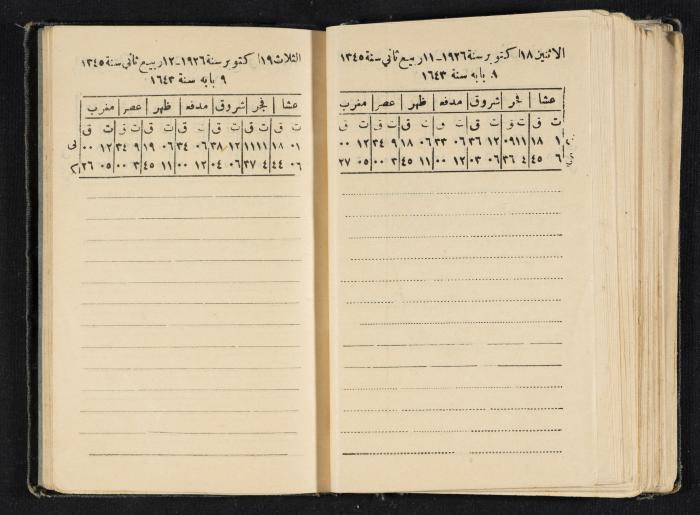 الاثنين ١٨ اكتوبر سنة ١٩٢٦ - ١١ ربيع ثاني سنة ١٣٤٥
بابه سنة ١٦٤٣
عشا | فجر | شروق | مدفه | ظهر | عصر | مغرب
ت ق | ت ق | ت ق | ت ق | ت ق | ت ق | ت ق
١ ١٨ | ١١ ٠٩ | ١٢ ٣٦ | ٠٦ ٣٣ | ٠٦ ١٨ | ٩ ٣٤ | ١٢ ٠٠
٦ ٤٥ | ٤ ٣٦ | ٠٦ ٠٣ | ١٢ ٠٠ | ١١ ٤٥ | ٣ ٠٠ | ٠٥ ٢٧
الثلاث ١٩ اكتوبر سنة ١٩٢٦ - ١٢ ربيع ثاني سنة ١٣٤٥
٩ بابه سنة ١٦٤٣
عشا | فجر | شروق | مدفه | ظهر | عصر | مغرب
ت ق | ت ق | ت ق | ت ق | ت ق | ت ق | ت ق
٠١ ١٨ | ١١ ١١ | ١٢ ٣٨ | ٠٦ ٣٤ | ٠٦ ١٩ | ٩ ٣٤ | ١٢ ٠٠
٠٦ ٤٤ | ٤ ٣٧ | ٠٦ ٠٤ | ١٢ ٠٠ | ١١ ٤٥ | ٣ ٠٠ | ٠٥ ٢٦